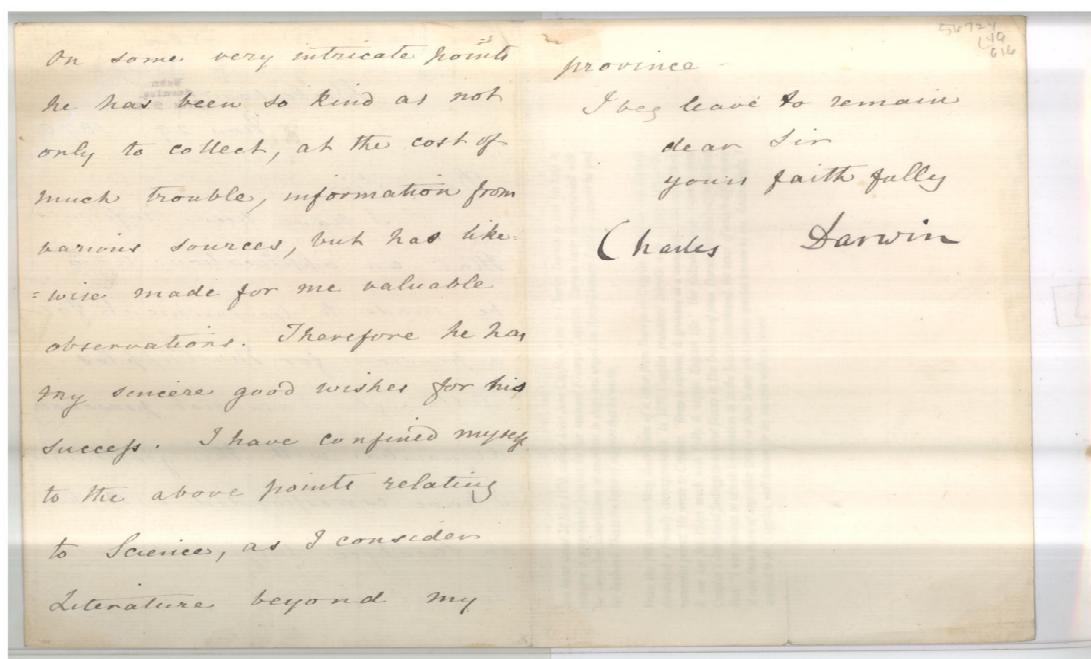 On some very intricate points
he has been so kind as not
only to collect, at the cost of
much trouble, information from
various sources, but has like=
=wise made for me valuable
observations. Therefore he has
my sincere good wishes for his
success. I have confined myself
to the above points relating
to Science, as I consider
Literature beyond my
2
province —
I beg leave to remain
dear Sir
yours faithfully
Charles Darwin